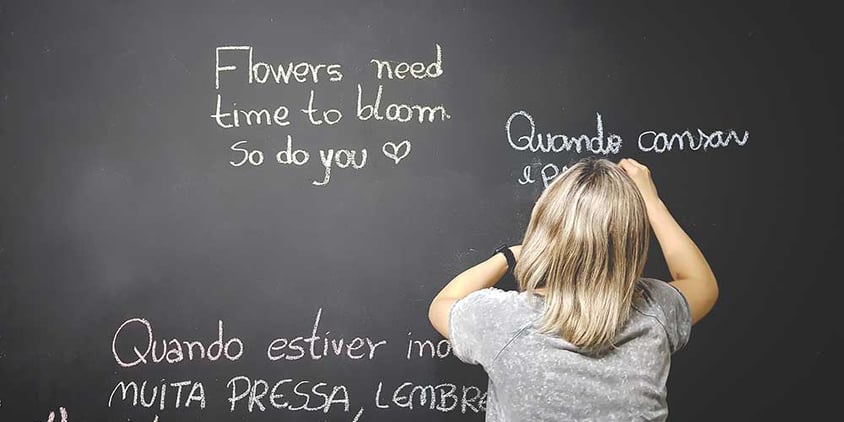 Flowers need
time to bloom
So do you ♡
Quando cansar
e
Quando estiver
MUITA PRESSA, LEMBRE